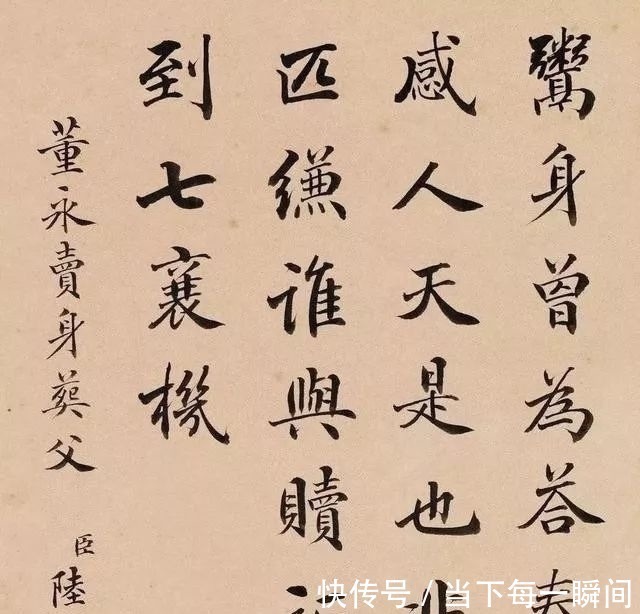 鬻身曾為答春
感人天是也非
匹縑谁與贖
到七襄機
董永賣身葬父
臣
陸
快传号/当下每一瞬间